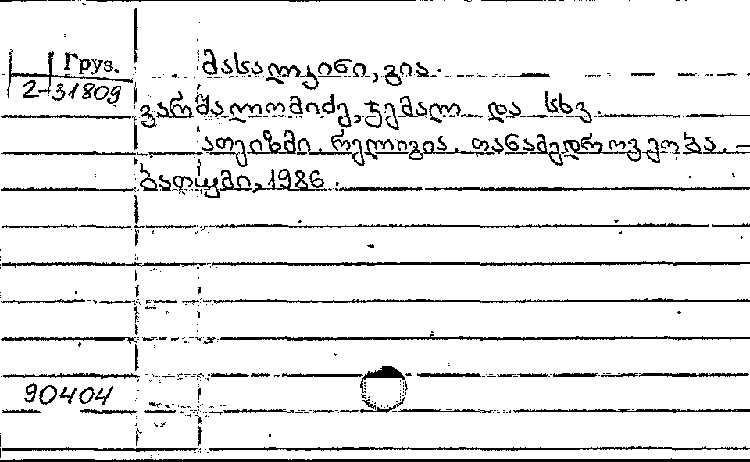 Груз.
2-31809
მასალკინი, გია.
ვარშალომიძე, ჯემალ და სხვ.
ათეიზმი. რელიგია. თანამედროვეობა. –
ბათუმი, 1986.
90404